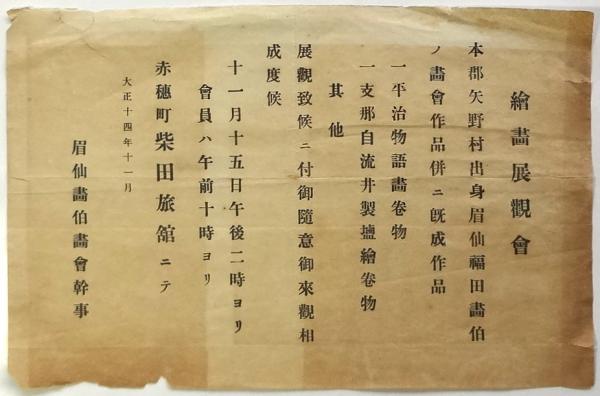 繪畵展觀會
本郡矢野村出身眉仙福田畵伯
ノ畵會作品併ニ旣成作品
一平治物語畵卷物
一支那自流井製塩繪卷物
其他
展觀致候ニ付御隨意御來觀相
成度候
十一月十五日午後二時ヨリ
會員ハ午前十時ヨリ
赤穗町柴田旅舘ニテ
大正十四年十一月
眉仙畵伯畵會幹事